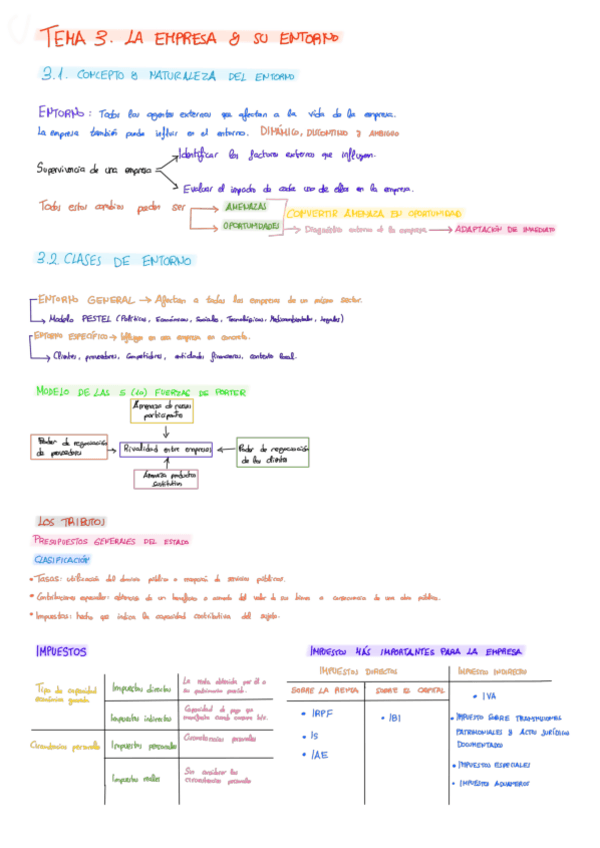 TEMA 3. LA EMPRESA Y SU ENTORNO
3.1. CONCEPTO Y NATURALEZA DEL ENTORNO
ENTORNO: Todos los agentes externos que afectan a la vida de la empresa.
La empresa también puede influir en el entorno. DINÁMICO, DISCONTINUO Y AMBIGUO
Identificar los factores externos que influyen.
Supervivencia de una empresa
Evaluar el impacto de cada uno de ellos en la empresa.
Todos estos cambios pueden ser
AMENAZAS
CONVERTIR AMENAZA EN OPORTUNIDAD
OPORTUNIDADES
Diagnóstico externo de la empresa → ADAPTACIÓN DE INMEDIATO
3.2 CLASES DE ENTORNO
ENTORNO GENERAL → Afectan a todas las empresas de un mismo sector.
Modelo PESTEL (Políticos, Económicos, Sociales, Tecnológicos, Medioambientales, Legales)
ENTORNO ESPECÍFICO → Influyen en una empresa en concreto.
Clientes, proveedores, competidores, entidades financieras, contexto local.
MODELO DE LAS 5 (+1) FUERZAS DE PORTER
Amenaza de nuevos
participantes
Poder de negociación
de proveedores
Rivalidad entre empresas
Poder de negociación
de los clientes
Amenaza productos
sustitutivos
LOS TRIBUTOS
PRESUPUESTOS GENERALES DEL ESTADO
CLASIFICACIÓN
• Tasas: utilización del dominio público o recepción de servicios públicos.
• Contribuciones especiales: obtención de un beneficio o aumento del valor de sus bienes a consecuencia de una obra pública.
• Impuestos: hecho que indica la capacidad contributiva del sujeto.
IMPUESTOS
Tipo de capacidad
económica gravada
Impuestos directos
La renta obtenida por él o
su patrimonio
Impuestos indirectos
Capacidad de pago que
manifiesta cuando consume
Circunstancias personales
Impuestos personales
Circunstancias personales
Impuestos reales
Sin considerar las
circunstancias personales
IMPUESTOS MÁS IMPORTANTES PARA LA EMPRESA
IMPUESTOS DIRECTOS
IMPUESTOS INDIRECTOS
SOBRE LA RENTA
SOBRE EL CAPITAL
• IRPF
• IS
• IAE
• IBI
• IVA
• IMPUESTO SOBRE TRANSMISIONES
PATRIMONIALES Y ACTOS JURÍDICOS
DOCUMENTADOS
• IMPUESTOS ESPECIALES
• IMPUESTOS ADUANEROS